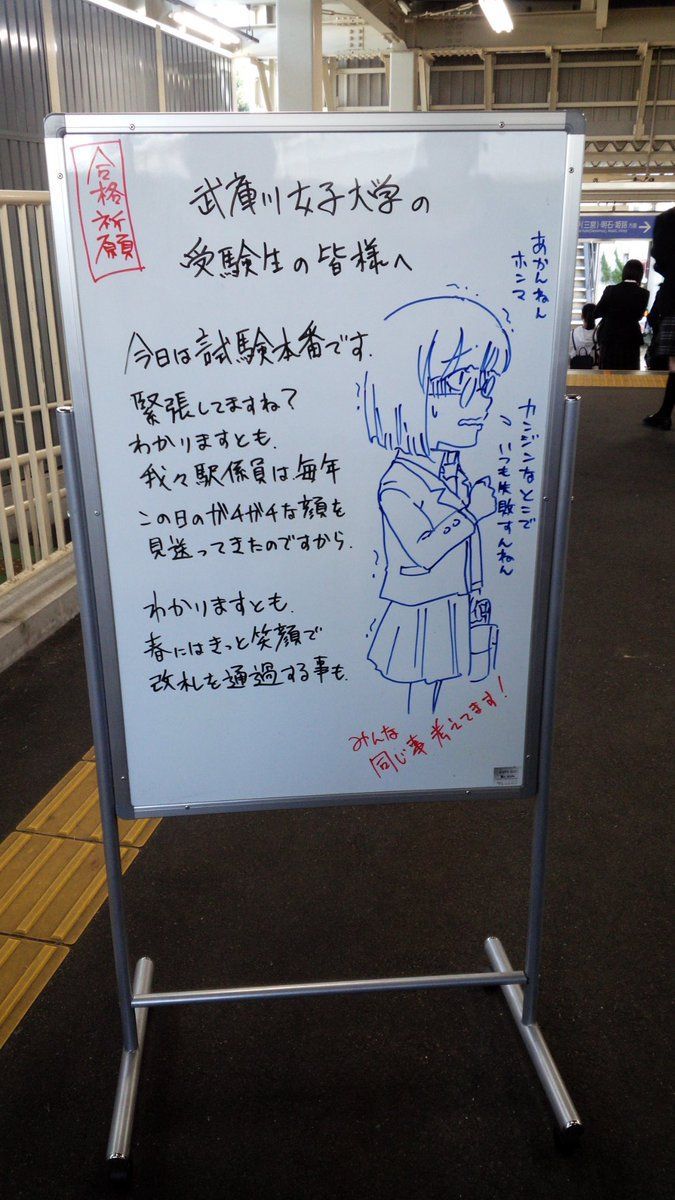 合格祈願
武庫川女子大学の
受験生の皆様へ
今日は試験本番です.
緊張してますね？
わかりますとも.
我々駅係員は毎年
この日のガチガチな顔を
見送ってきたのですから.
わかりますとも.
春にはきっと笑顔で
改札を通過する事も.
あかんねん
ホンマ
カンジンなとこで
いつも失敗すんねん
みんな
同じ事考えてます！
(三宮)・明石・姫路方面